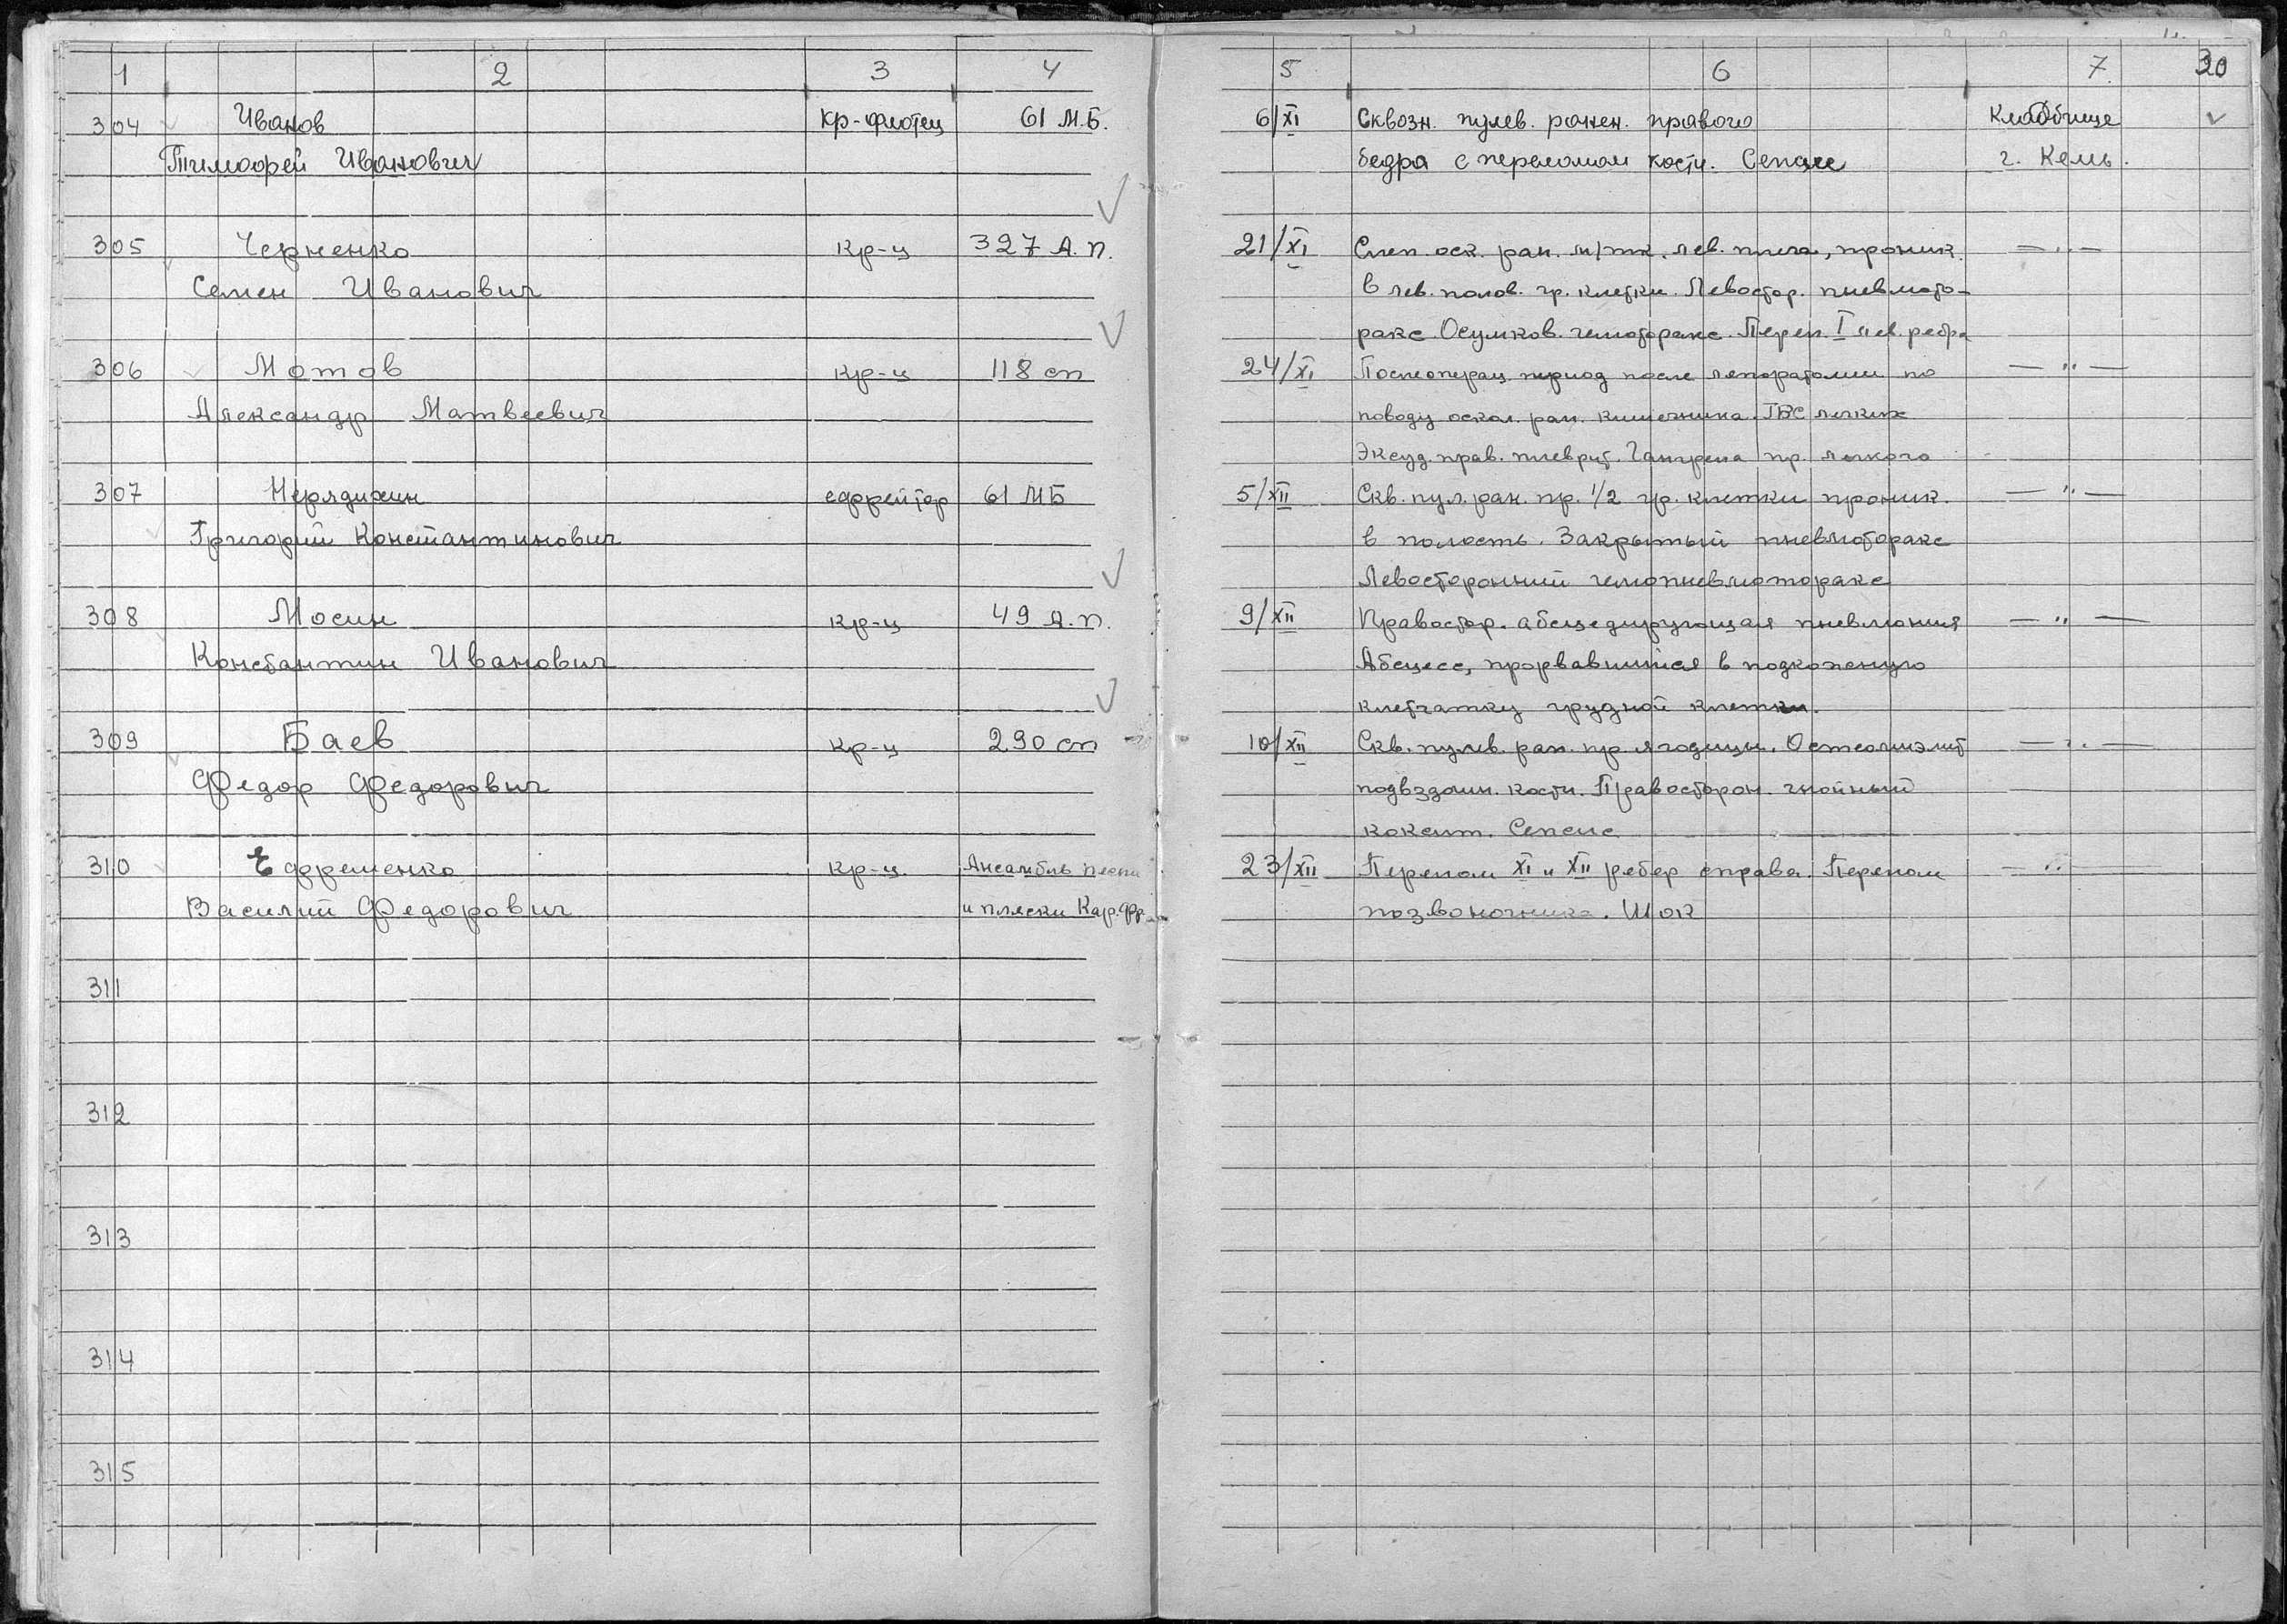 1 2 3 4 5 6 7 30
304 Иванов кр-флотец 61 М.Б. 6/XI Сквозн. пулев. ранен. правого Кладбище
Тимофей Иванович бедра с переломом кости. Сепсис г. Кемь.
305 Черненко кр-ц 327 А.П. 21/XI Слеп. оск. ран. м/тк. лев. плеча, проник. — " —
Семен Иванович в лев. полов. гр. клетки. Левостор. пневмото-
ракс. Осумков. гемоторакс. Перел. I лев. ребра
306 Мотов кр-ц 118 сп 24/XI Послеоперац. период после лапоратомии по — " —
Александр Матвеевич поводу оскол. ран. кишечника. ТВС легких
Эксуд. прав. плеврит. Гангрена пр. легкого
307 Нерядихин ефрейтор 61 МБ 5/XII Скв. пул. ран. пр. 1/2 гр. клетки проник. — " —
Григорий Константинович в полость. Закрытый пневмоторакс
Левосторонний гемопневмоторакс
308 Мосин кр-ц 49 А.П. 9/XII Правостор. абсцедирующая пневмония — " —
Константин Иванович Абсцесс, прорвавшийся в подкожную
клетчатку грудной клетки.
309 Баев кр-ц 290 сп 10/XII Скв. пулев. ран. пр. ягодицы. Остеомиэлит — " —
Федор Федорович подвздошн. кости. Правосторон. гнойный
коксит. Сепсис
310 Ефременко кр-ц Ансамбль песни 23/XII Перелом XI и XII ребер справа. Перелом — " —
Василий Федорович и пляски Кар. фр. позвоночника. Шок
311
312
313
314
315